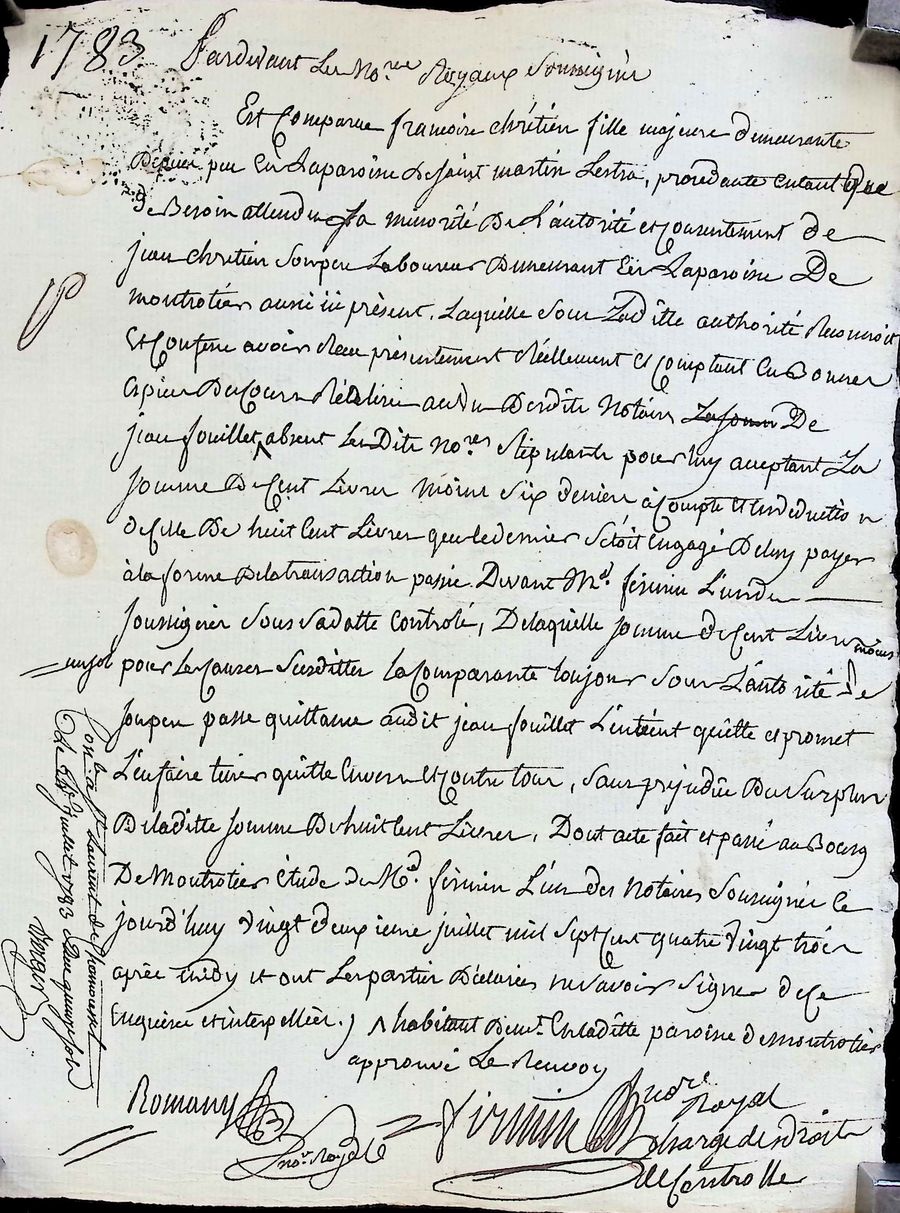 1783 Pardevant Les No.res Royaux Soussignés
Est Comparue francoise chrétien fille majeure demeurante
depuis peu En Laparoisse de saint martin Lestra, procedante entant que
de Besoin attendu Sa minorité De L'autorité et Consentement de
jean chretien Sonpere Laboureur Demeurant En Laparoisse De
montrotier aussi ici présent. Laquelle sous Laditte authorité Reconnoit
Et Confesse avoir Receu présentement Réellement et Comptant En Bonnes
Espèces Du Cours Réélisé au vu Desdits Notaires De
jean fouillet ^ absent Les Dits No.res Stipulants pour luy acceptant La
Somme De Cent Livres moins Six deniers à Compte et En déduction
de Celle De huit Cent Livres que le dernier S'étoit Engagé De luy payer
à la forme De la transaction passée Devant Me. firmin L'un des
soussignés sous sa datte Controlé, De laquelle somme de Cent Livres moins
un sol pour les Causes Susdittes la Comparante toujours sous L'autorité de
Sonpere passe quittance audit jean fouillet L'entient quitte et promet
L'en faire tenir quitte Envers et Contre tous, sans prejudice Du Surplus
De laditte somme De huit Cent Livres, Dont acte fait et passé au Bourg
De Montrotier étude de Me. firmin L'un des Notaires Soussignés le
jourd'huy vingt deuxieme juillet mil Sept Cent quatre vingt trois
après midy et ont Les parties Déclarées ne savoir signer de Ce
Enquises et interpellées.) ^ habitant Demt. En laditte paroisse de montrotier
approuvé Le Renvoy
Romany
no.re Royal
firmin no.re
Royal
chargé des Droits
de Controlle
Con.lé à St. Laurent de Chamousset
de juillet 1783 Reçu quinze sols